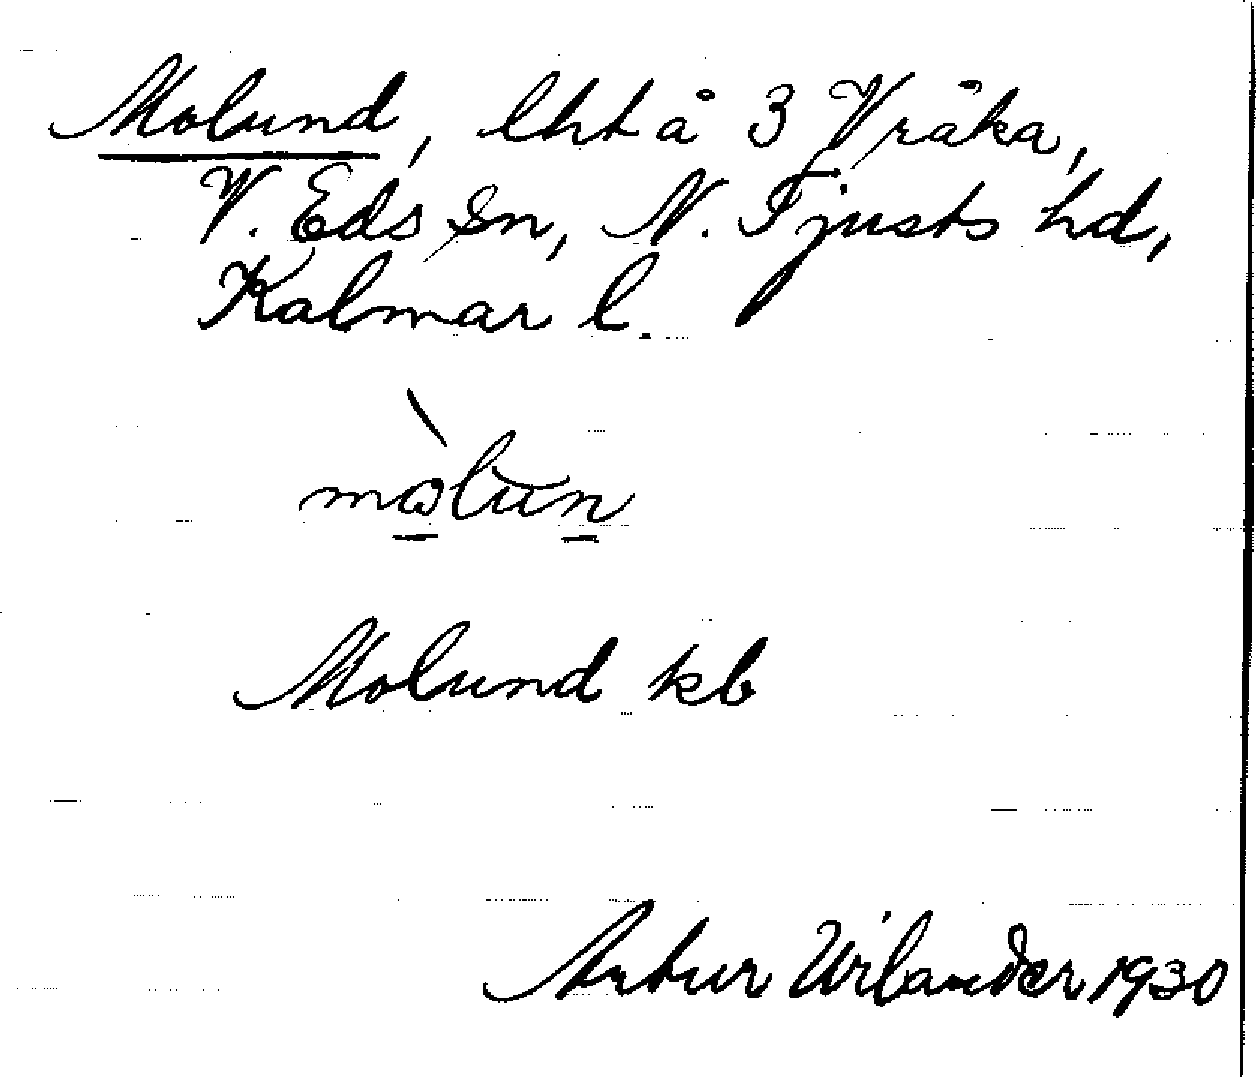 Molund, lht å 3 Vråka,
V. Eds sn, N. Tjusts hd,
Kalmar l.
mòlun
Molund kb
Artur Wilander 1930